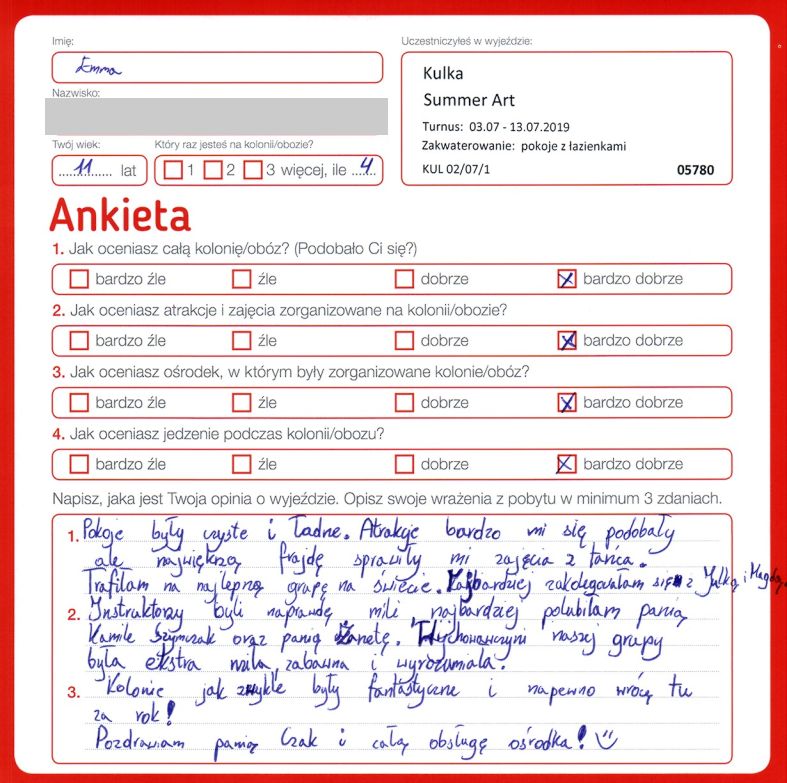 Imię:
Emma
Nazwisko:
Twój wiek:
11 lat
Który raz jesteś na kolonii/obozie?
1 2 3 więcej, ile 4
Uczestniczyłeś w wyjeździe:
Kulka
Summer Art
Turnus: 03.07 - 13.07.2019
Zakwaterowanie: pokoje z łazienkami
KUL 02/07/1 05780
Ankieta
1. Jak oceniasz całą kolonię/obóz? (Podobało Ci się?)
bardzo źle źle dobrze bardzo dobrze
2. Jak oceniasz atrakcje i zajęcia zorganizowane na kolonii/obozie?
bardzo źle źle dobrze bardzo dobrze
3. Jak oceniasz ośrodek, w którym były zorganizowane kolonie/obóz?
bardzo źle źle dobrze bardzo dobrze
4. Jak oceniasz jedzenie podczas kolonii/obozu?
bardzo źle źle dobrze bardzo dobrze
Napisz, jaka jest Twoja opinia o wyjeździe. Opisz swoje wrażenia z pobytu w minimum 3 zdaniach.
1. Pokoje były czyste i ładne. Atrakcje bardzo mi się podobały
ale największą frajdę sprawiły mi zajęcia z tańca.
Trafiłam na najlepszą grupę na świecie. Najbardziej zakolegowałam się z Julką i Magdą.
2. Instruktorzy byli naprawdę mili, najbardziej polubiłam panią
Kamile Szymczak oraz panią Żanetę. Wychowawczyni naszej grupy
była ekstra miła, zabawna i wyrozumiała.
3. Kolonie jak zwykle były fantastyczne i napewno wrócę tu
za rok!
Pozdrawiam panią Czak i całą obsługę ośrodka!